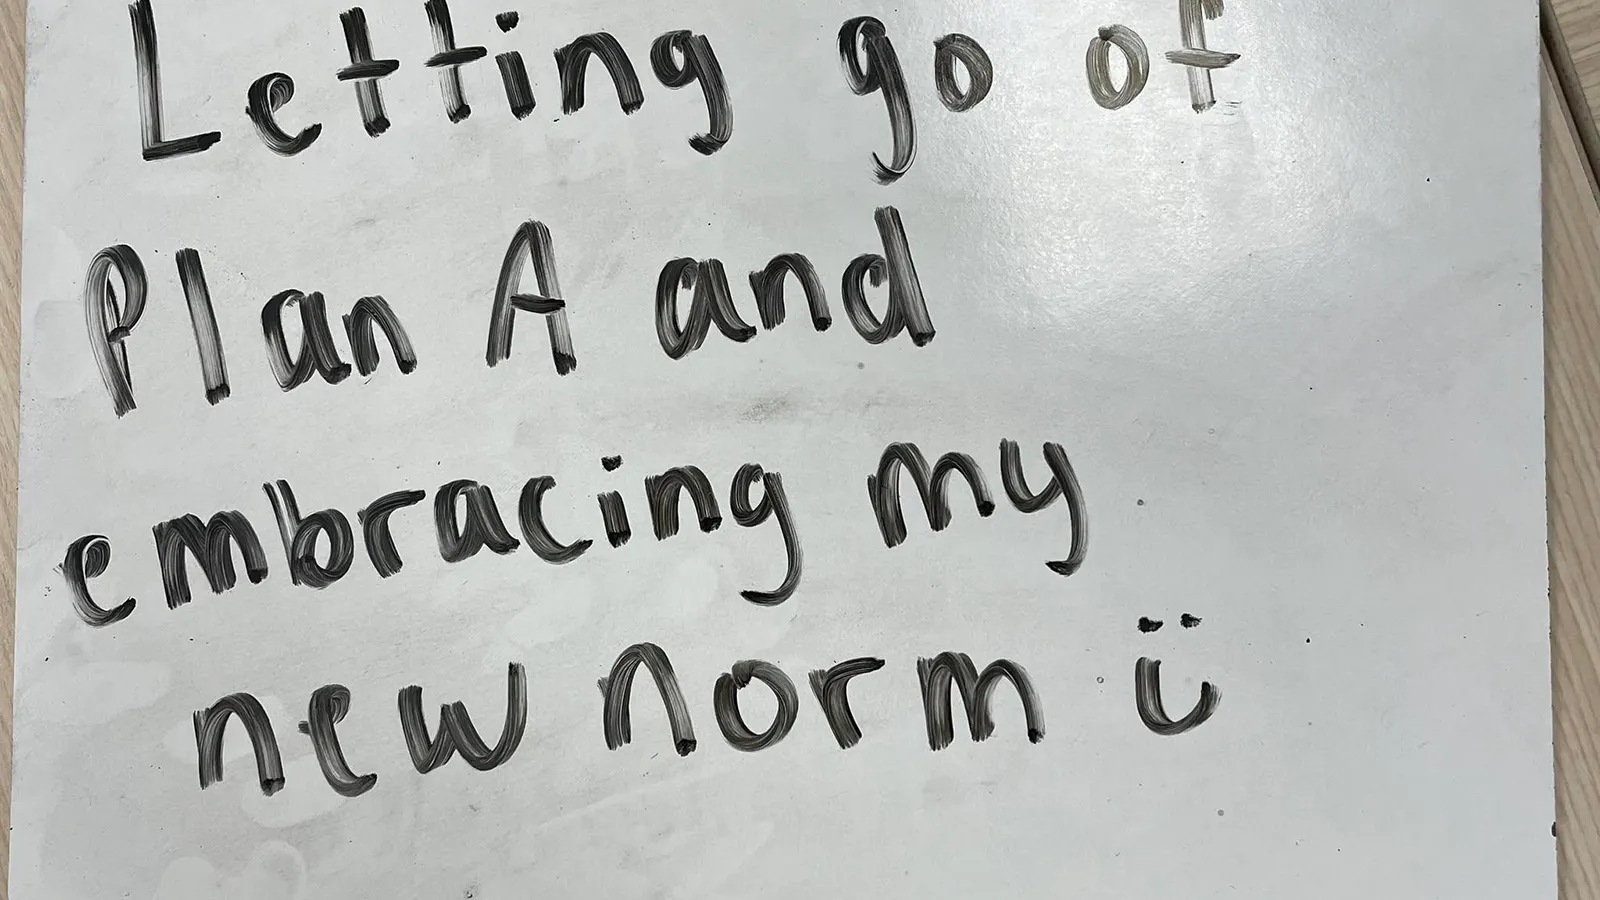 Letting go of
Plan A and
embracing my
new norm :)